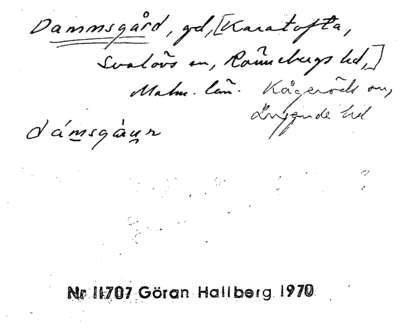 Dammsgård, gd, [Karatofta,
Svalövs sn, Rönnebergs hd,]
Malm. län. Kågeröds sn,
Luggude hd
dámsgàun
Nr 11707 Göran Hallberg 1970